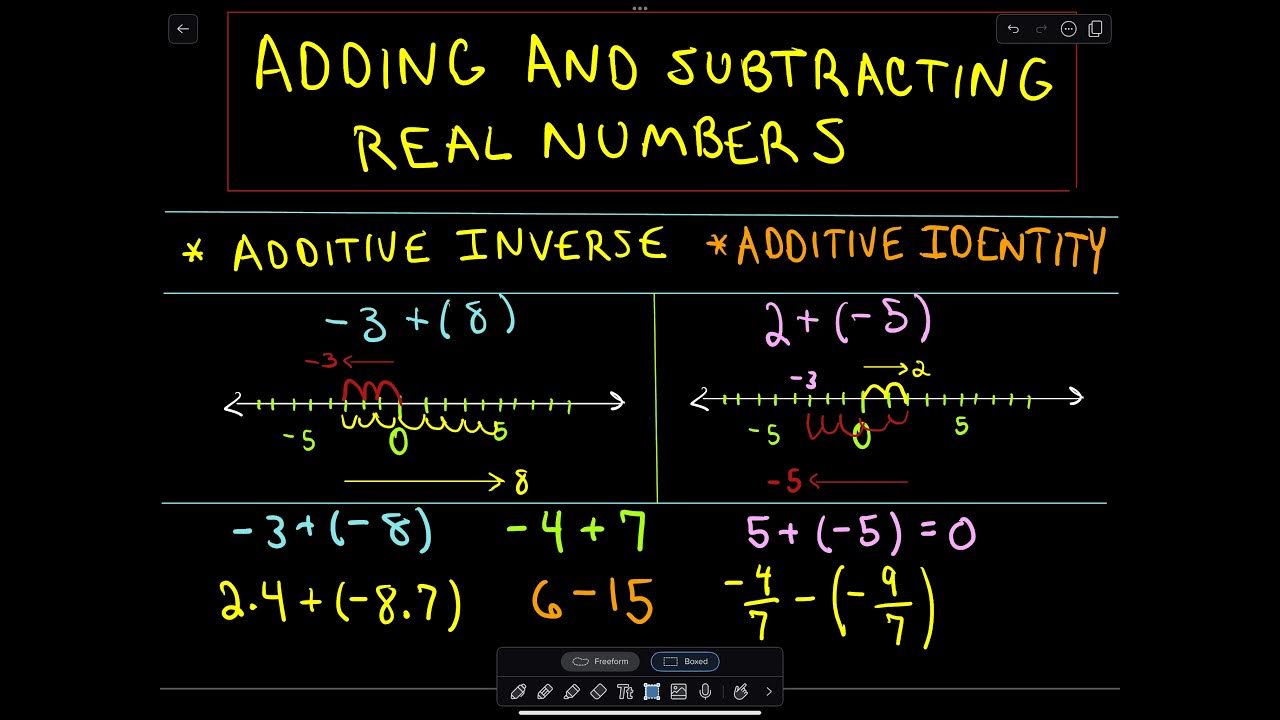 ADDING AND SUBTRACTING
REAL NUMBERS
* ADDITIVE INVERSE
* ADDITIVE IDENTITY
-3 + (8)
-3
-5 0 5
8
2 + (-5)
2
-3
-5 0 5
-5
-3 + (-8)
-4 + 7
5 + (-5) = 0
2.4 + (-8.7)
6 - 15
-4/7 - (-9/7)
Freeform Boxed
Tt